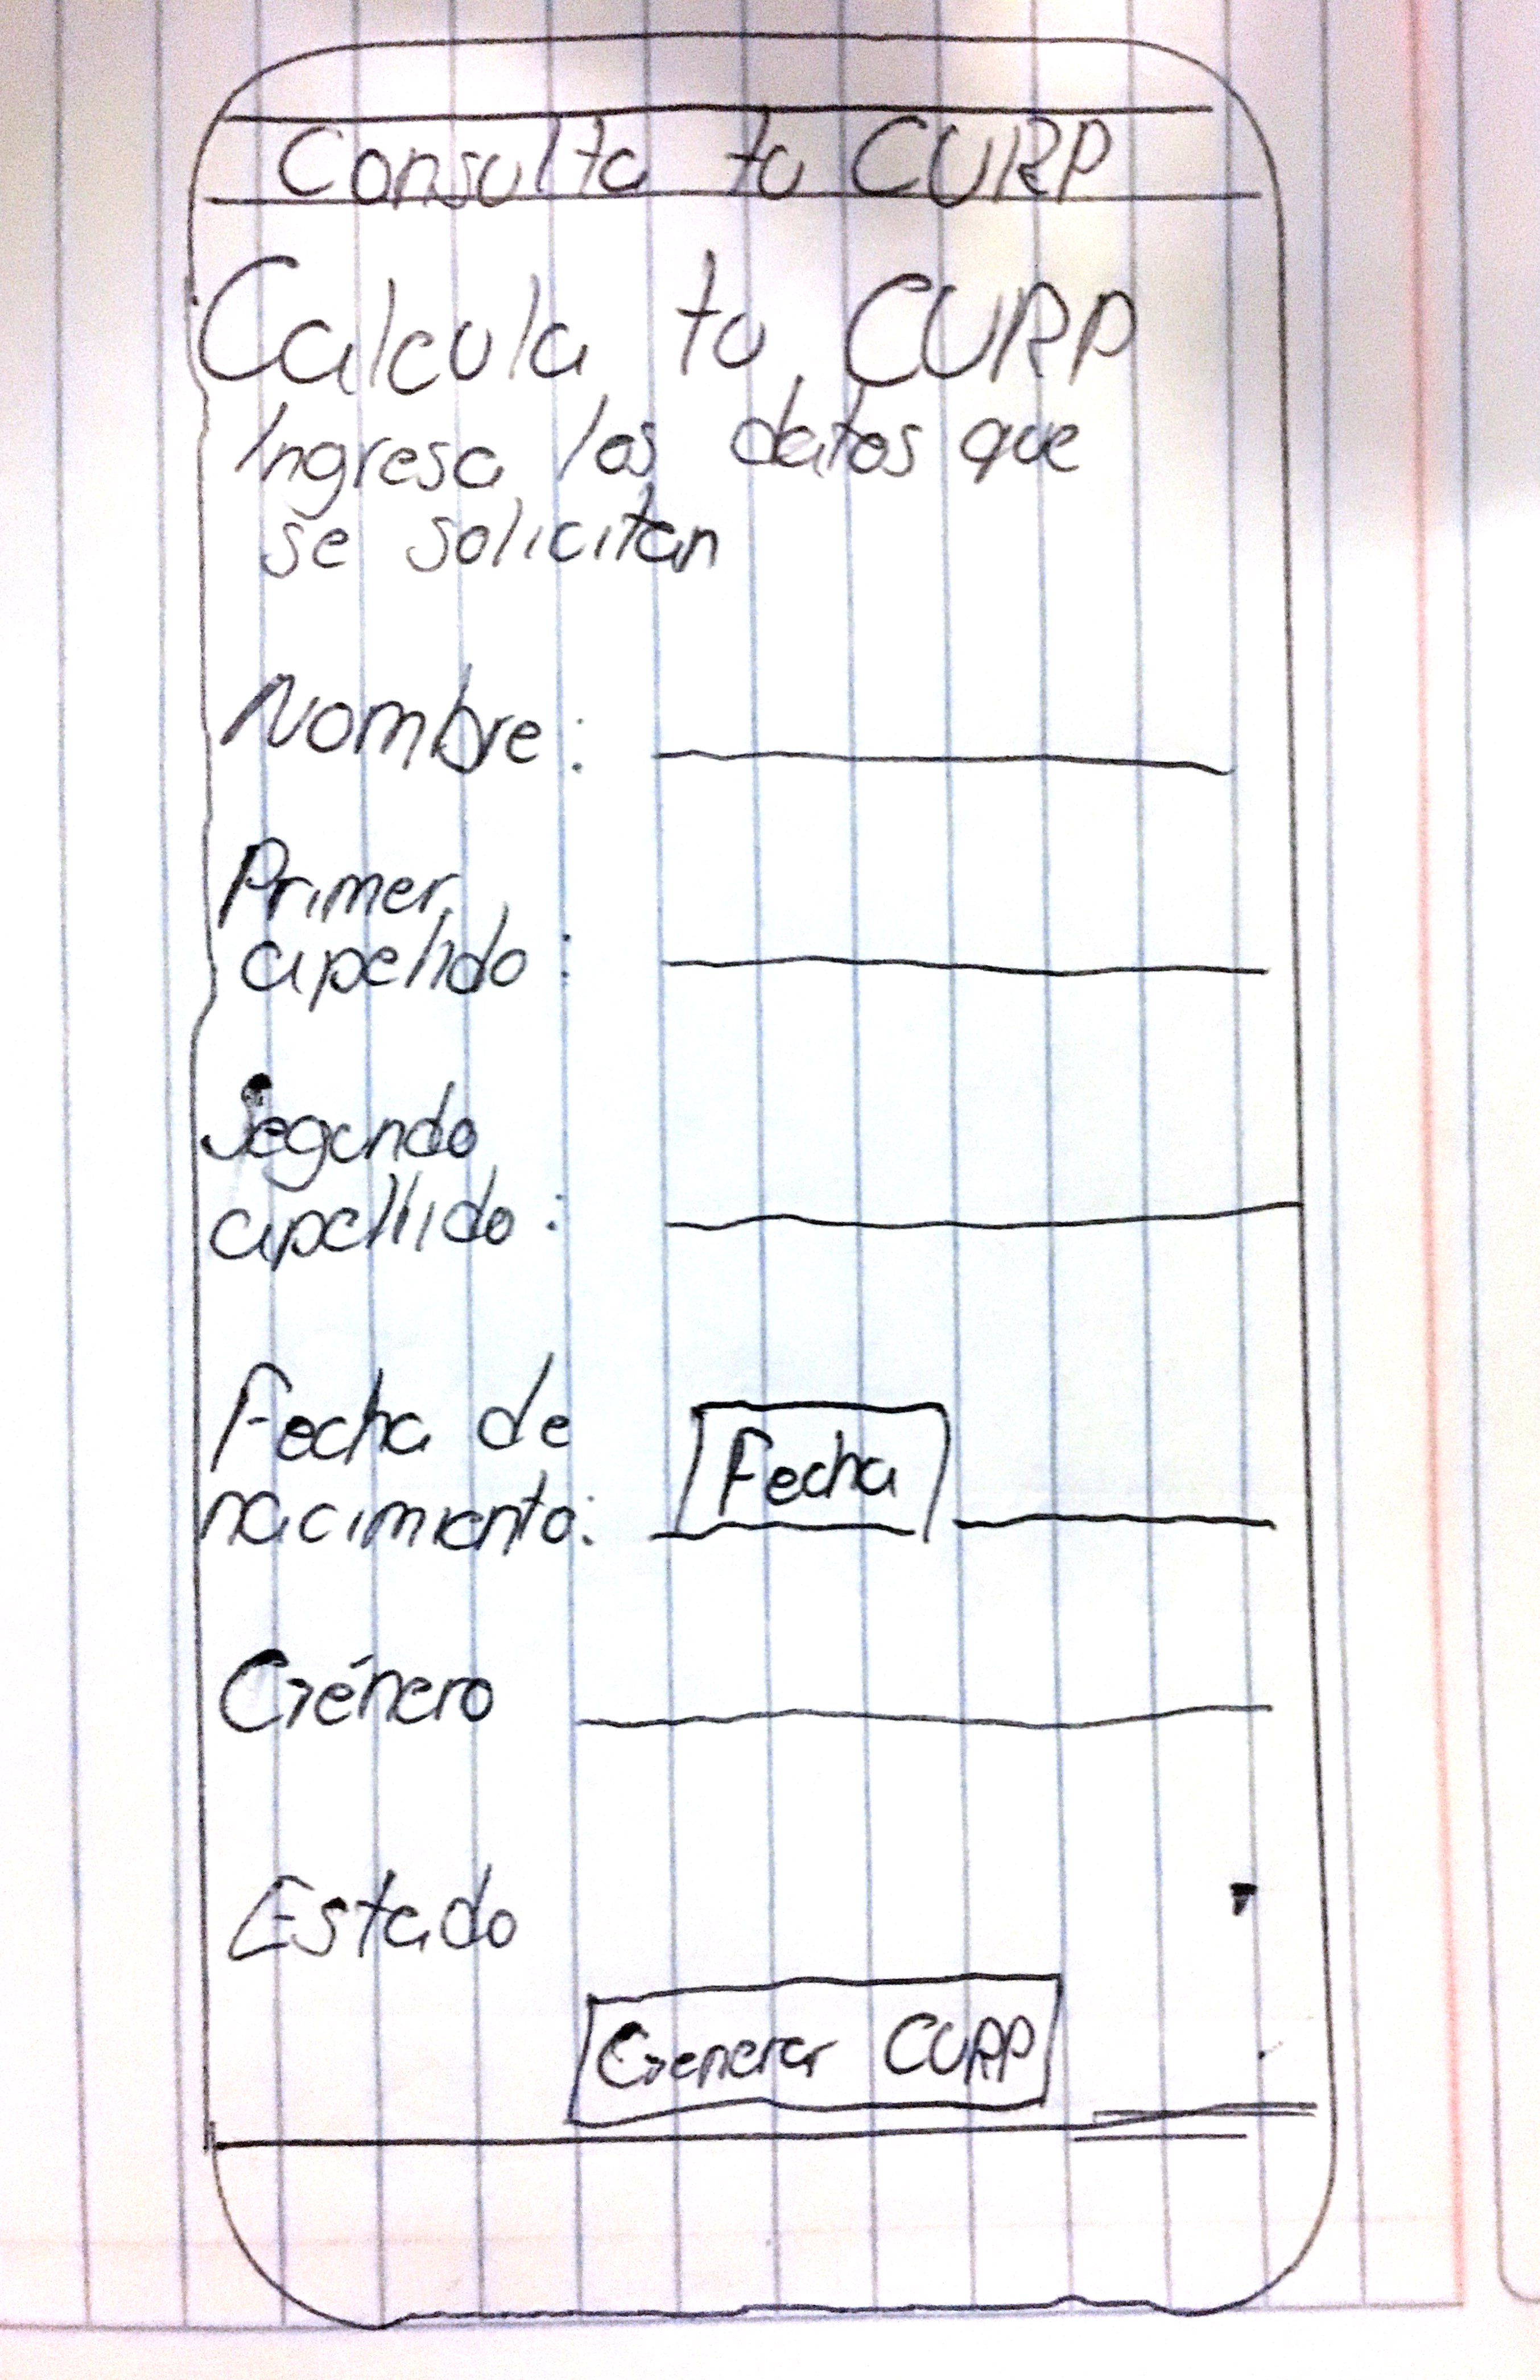 Consulta tu CURP
Calcula tu CURP
Ingresa los datos que
se solicitan
Nombre:
Primer
apellido:
Segundo
apellido:
Fecha de
nacimiento:
Fecha
Género
Estado
Generar CURP